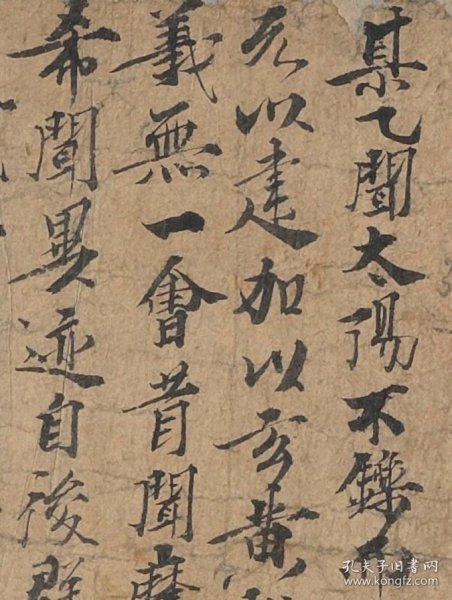 某乙聞太陽不鑠
以建加以玄黃
義無一會昔聞摩
希聞異迹自後群
孔夫子旧书网
www.kongfz.com